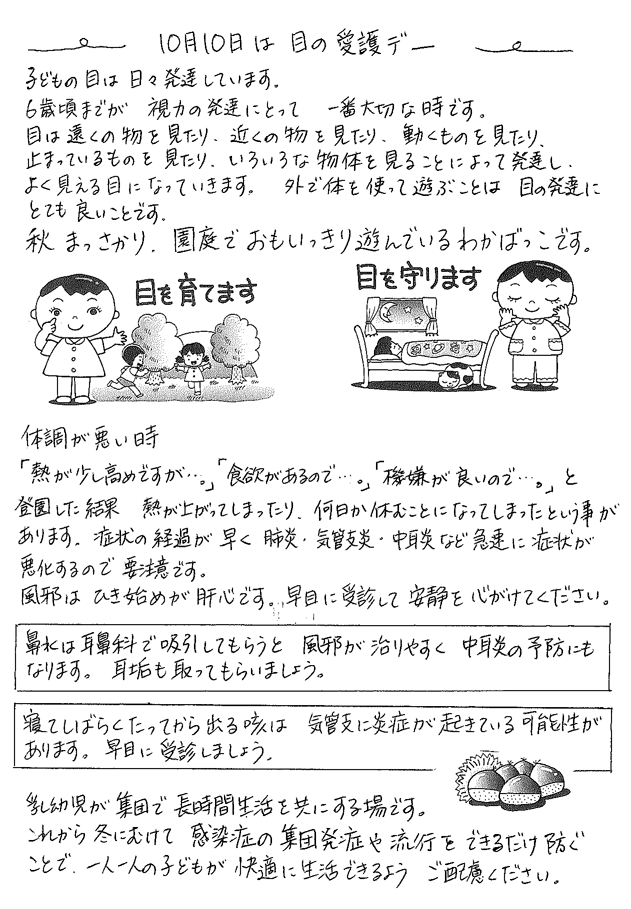 10月10日は 目の愛護デー
子どもの目は 日々発達しています。
6歳頃までが 視力の発達にとって 一番大切な時です。
目は遠くの物を見たり、近くの物を見たり、動くものを見たり、
止まっているものを見たり、いろいろな物体を見ることによって発達し、
よく見える目になっていきます。 外で体を使って遊ぶことは 目の発達に
とても良いことです。
秋まっさかり、園庭でおもいっきり遊んでいるわかばっこです。
目を育てます
目を守ります
体調が悪い時
「熱が少し高めですが…。」「食欲があるので…。」「機嫌が良いので…。」と
登園した結果 熱が上がってしまったり、何日か休むことになってしまったという事が
あります。症状の経過が早く 肺炎・気管支炎・中耳炎など急速に症状が
悪化するので要注意です。
風邪は ひき始めが肝心です。早目に受診して安静を心がけてください。
鼻水は耳鼻科で吸引してもらうと 風邪が治りやすく 中耳炎の予防にも
なります。 耳垢も取ってもらいましょう。
寝てしばらくたってから出る咳は 気管支に炎症が起きている可能性が
あります。早目に受診しましょう。
乳幼児が集団で長時間生活を共にする場です。
これから冬にむけて 感染症の集団発症や流行をできるだけ防ぐ
ことで、一人一人の子どもが快適に生活できるよう ご配慮ください。